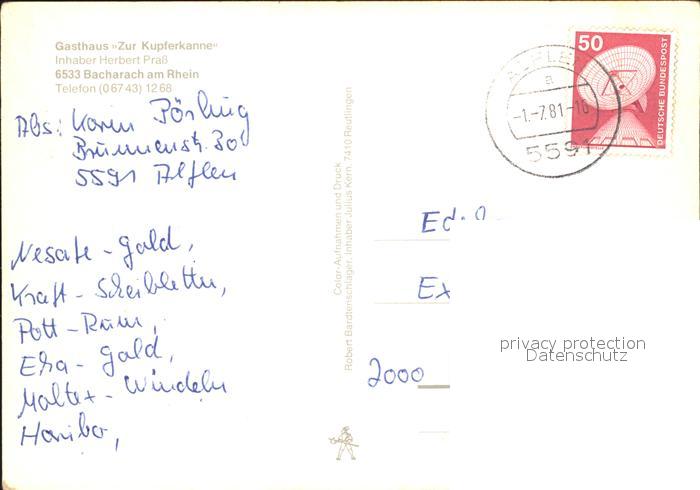 Gasthaus »Zur Kupferkanne«
Inhaber Herbert Praß
6533 Bacharach am Rhein
Telefon (0 67 43) 12 68
Abs: Karin
Brunnenstr.
5591 Alflen
- Gold,
Kraft - Scheibletten,
Pott - Rum,
- Gold,
- Windeln
Haribo,
Color-Aufnahmen und Druck:
Robert Bardtenschlager, Inhaber Julius Kern, 7410 Reutlingen
50
DEUTSCHE BUNDESPOST
ALFLEN
a
-1.-7.81-16
5591
Ed
Ex
2000
privacy protection
Datenschutz